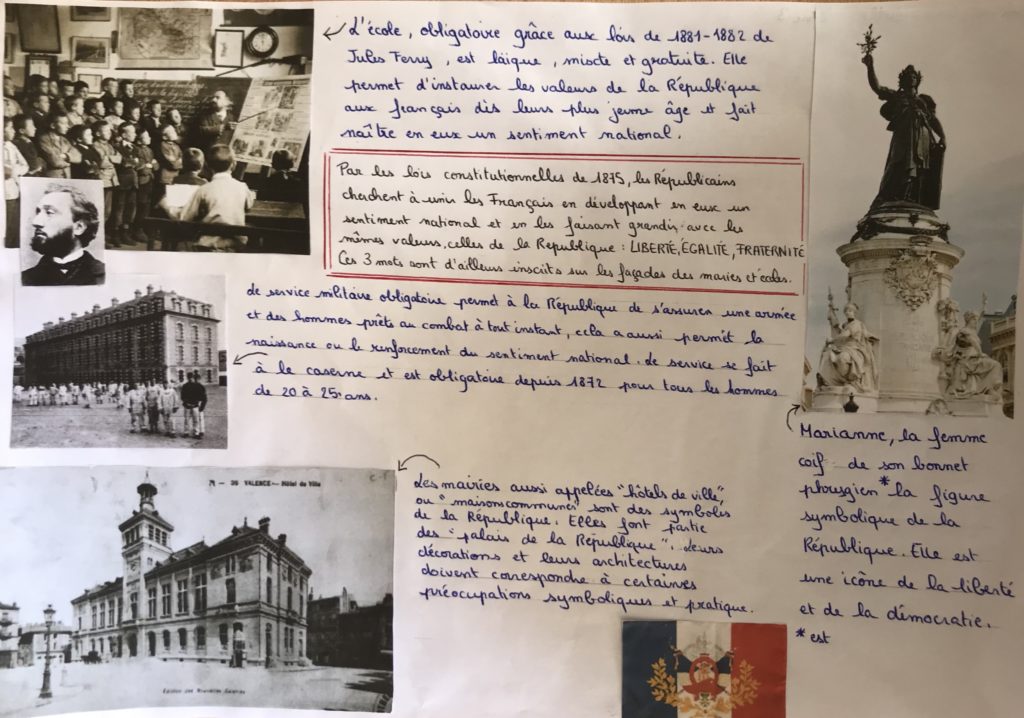 L'école, obligatoire grâce aux lois de 1881-1882 de
Jules Ferry, est laïque, mixte et gratuite. Elle
permet d'instaurer les valeurs de la République
aux français dès leurs plus jeune âge et fait
naître en eux un sentiment national.
Par les lois constitutionnelles de 1875, les Républicains
cherchent à unir les Français en développant en eux un
sentiment national et en les faisant grandir avec les
mêmes valeurs, celles de la République : LIBERTÉ, ÉGALITÉ, FRATERNITÉ
Ces 3 mots sont d'ailleurs inscrits sur les façades des mairies et écoles.
Le service militaire obligatoire permet à la République de s'assurer une armée
et des hommes prêts au combat à tout instant, cela a aussi permit la
naissance ou le renforcement du sentiment national. Le service se fait
à la caserne et est obligatoire depuis 1872 pour tous les hommes
de 20 à 25 ans.
Marianne, la femme
coif de son bonnet
phrygien * la figure
symbolique de la
République. Elle est
une icône de la liberté
et de la démocratie.
* est
36 VALENCE - Hôtel de Ville
Les mairies aussi appelées "hôtels de ville"
ou "maisons communes" sont des symboles
de la République. Elles font partie
des "palais de la République". Leurs
décorations et leurs architectures
doivent correspondre à certaines
préocupations symboliques et pratique.